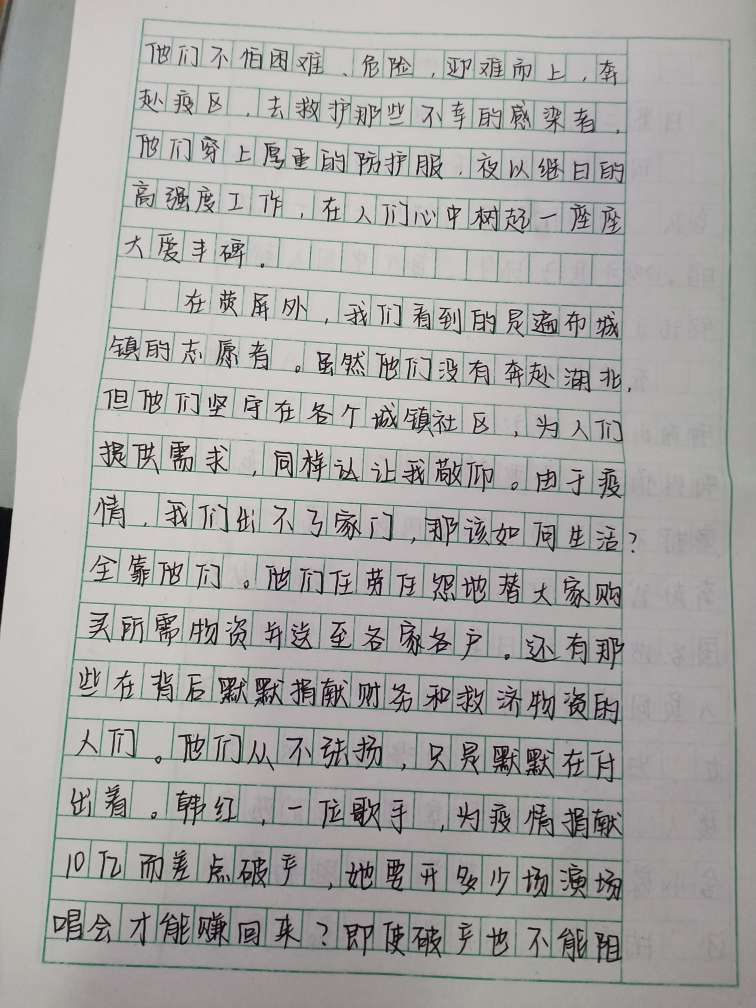 他们不怕困难、危险，迎难而上，奔
赴疫区，去救护那些不幸的感染者，
他们穿上厚重的防护服，夜以继日的
高强度工作，在人们心中树起一座座
大爱丰碑。
在荧屏外，我们看到的是遍布城
镇的志愿者。虽然他们没有奔赴湖北，
但他们坚守在各个城镇社区，为人们
提供需求，同样认让我敬仰。由于疫
情，我们出不了家门，那该如何生活？
全靠他们。他们任劳任怨地替大家购
买所需物资并送至各家各户。还有那
些在背后默默捐献财务和救济物资的
人们。他们从不张扬，只是默默在付
出着。韩红，一位歌手，为疫情捐献
10亿而差点破产，她要开多少场演场
唱会才能赚回来？即使破产也不能阻